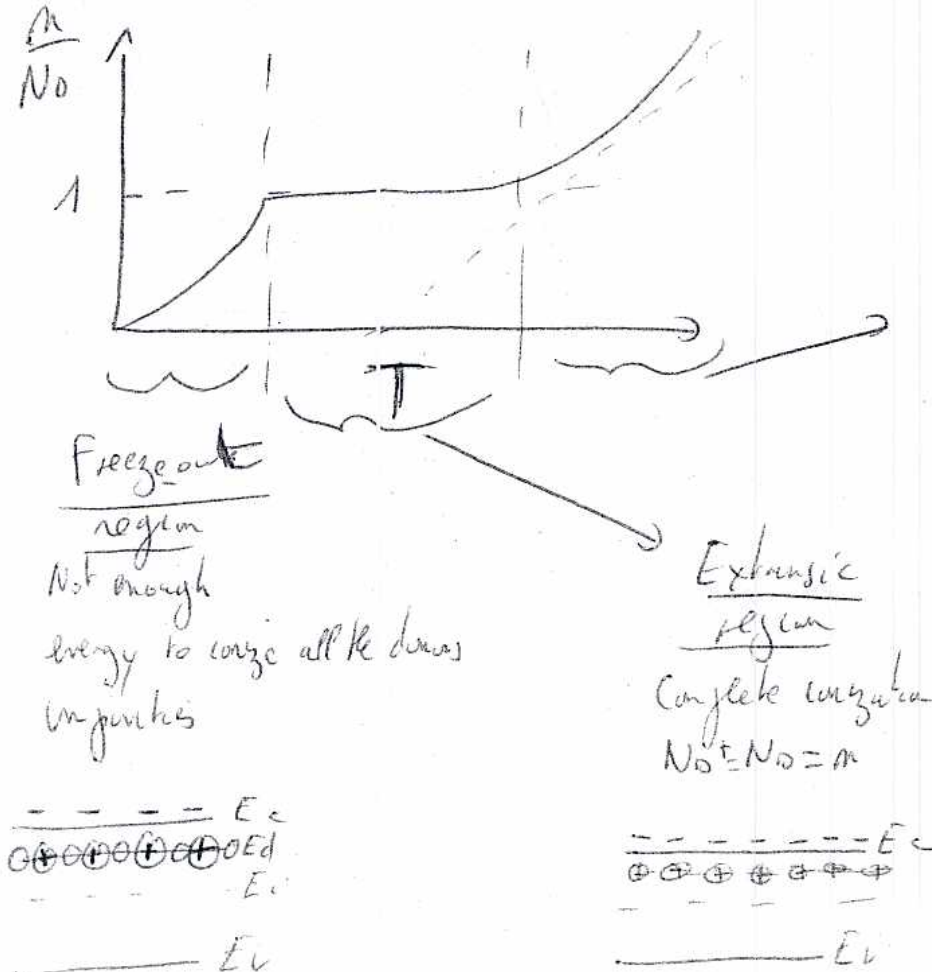 n
ND
1
T
Freeze_out
region
Not enough
energy to ionize all the donors
impurities
Extrinsic
region
Complete ionization
ND+=ND=n
- - - - Ec
O⊕O⊕O⊕O⊕O Ed
- - - - Ei
Ev
- - - - - - - Ec
⊕ ⊕ ⊕ ⊕ ⊕ ⊕ ⊕
Ev